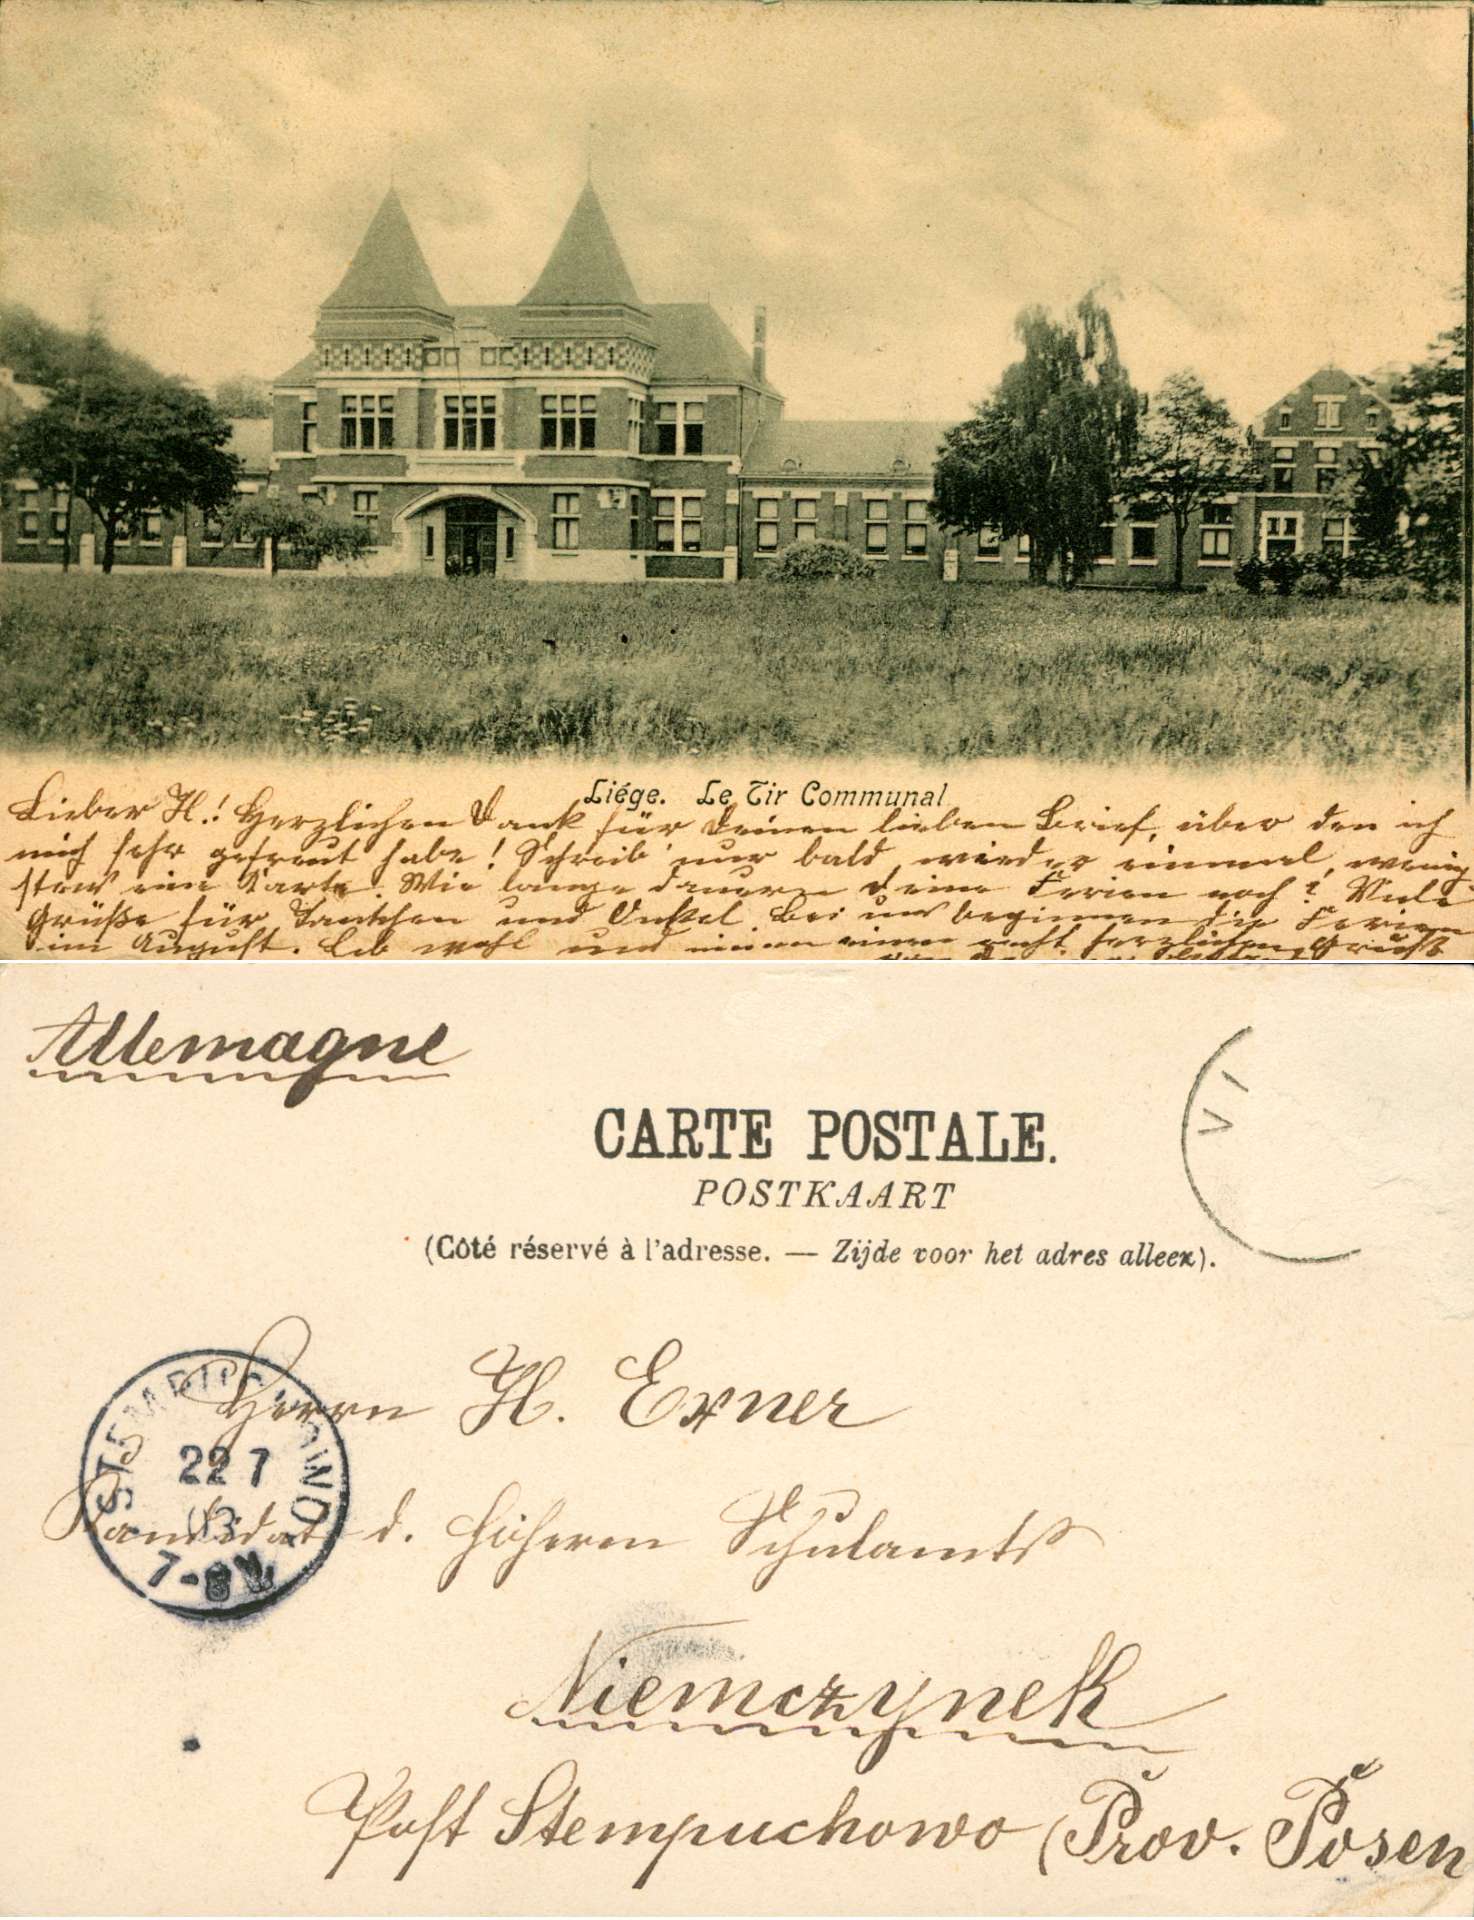 Liége. Le Tir Communal
Lieber H.! Herzlichen Dank für Deinen lieben Brief, über den ich
mich sehr gefreut habe! Schreib' nur bald wieder einmal, wenig-
stens eine Karte. Wie lange dauern Deine Ferien noch? Viele
Grüße für Tantchen und Onkel. Bei uns beginnen die Ferien
im August. Leb wohl und einen recht herzlichen Gruß
Allemagne
CARTE POSTALE.
POSTKAART
(Côté réservé à l'adresse. — Zijde voor het adres alleen).
Herrn H. Exner
Kandidat d. höheren Schulamts
Niemczynek
Post Stempuchowo (Prov. Posen
STEMPUCHOWO
22 7
03
7-8 V.